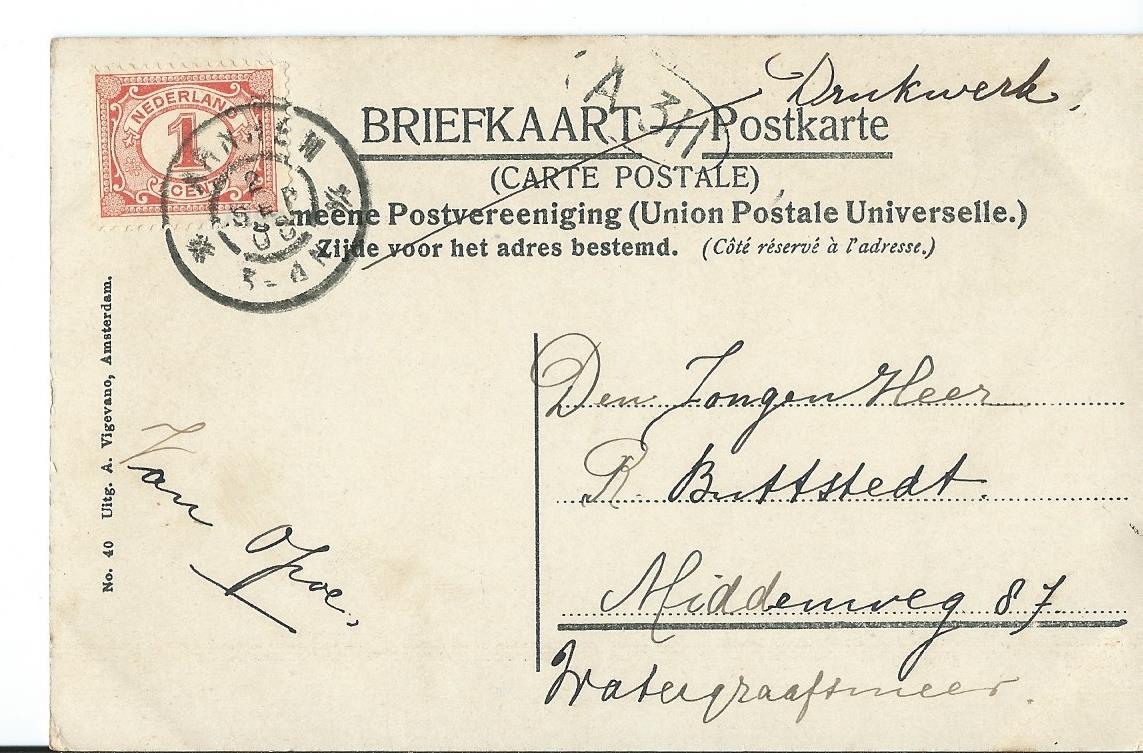 Drukwerk.
A 311
NEDERLAND
1
CENT
BRIEFKAART — Postkarte
(CARTE POSTALE)
meene Postvereeniging (Union Postale Universelle.)
Zijde voor het adres bestemd. (Côté réservé à l'adresse.)
No. 40 Uitg. A. Vigevano, Amsterdam.
Van Opoe.
Den Jongen Heer
R. Buttstedt.
Middenweg 87.
Watergraafsmeer.